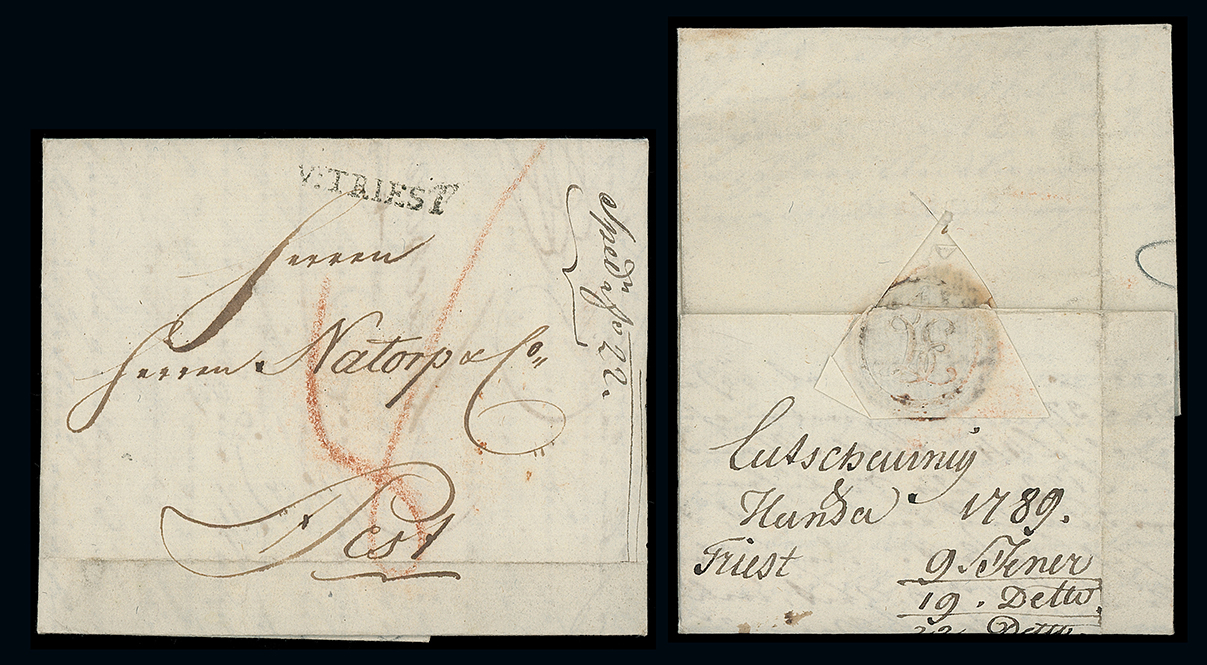 V. TRIEST
Herren
Herren Natorp & Co
Pest
22.
Lutscheunig
Handa 1789.
Triest 9. Jener
19. Detto.
22. Detto.